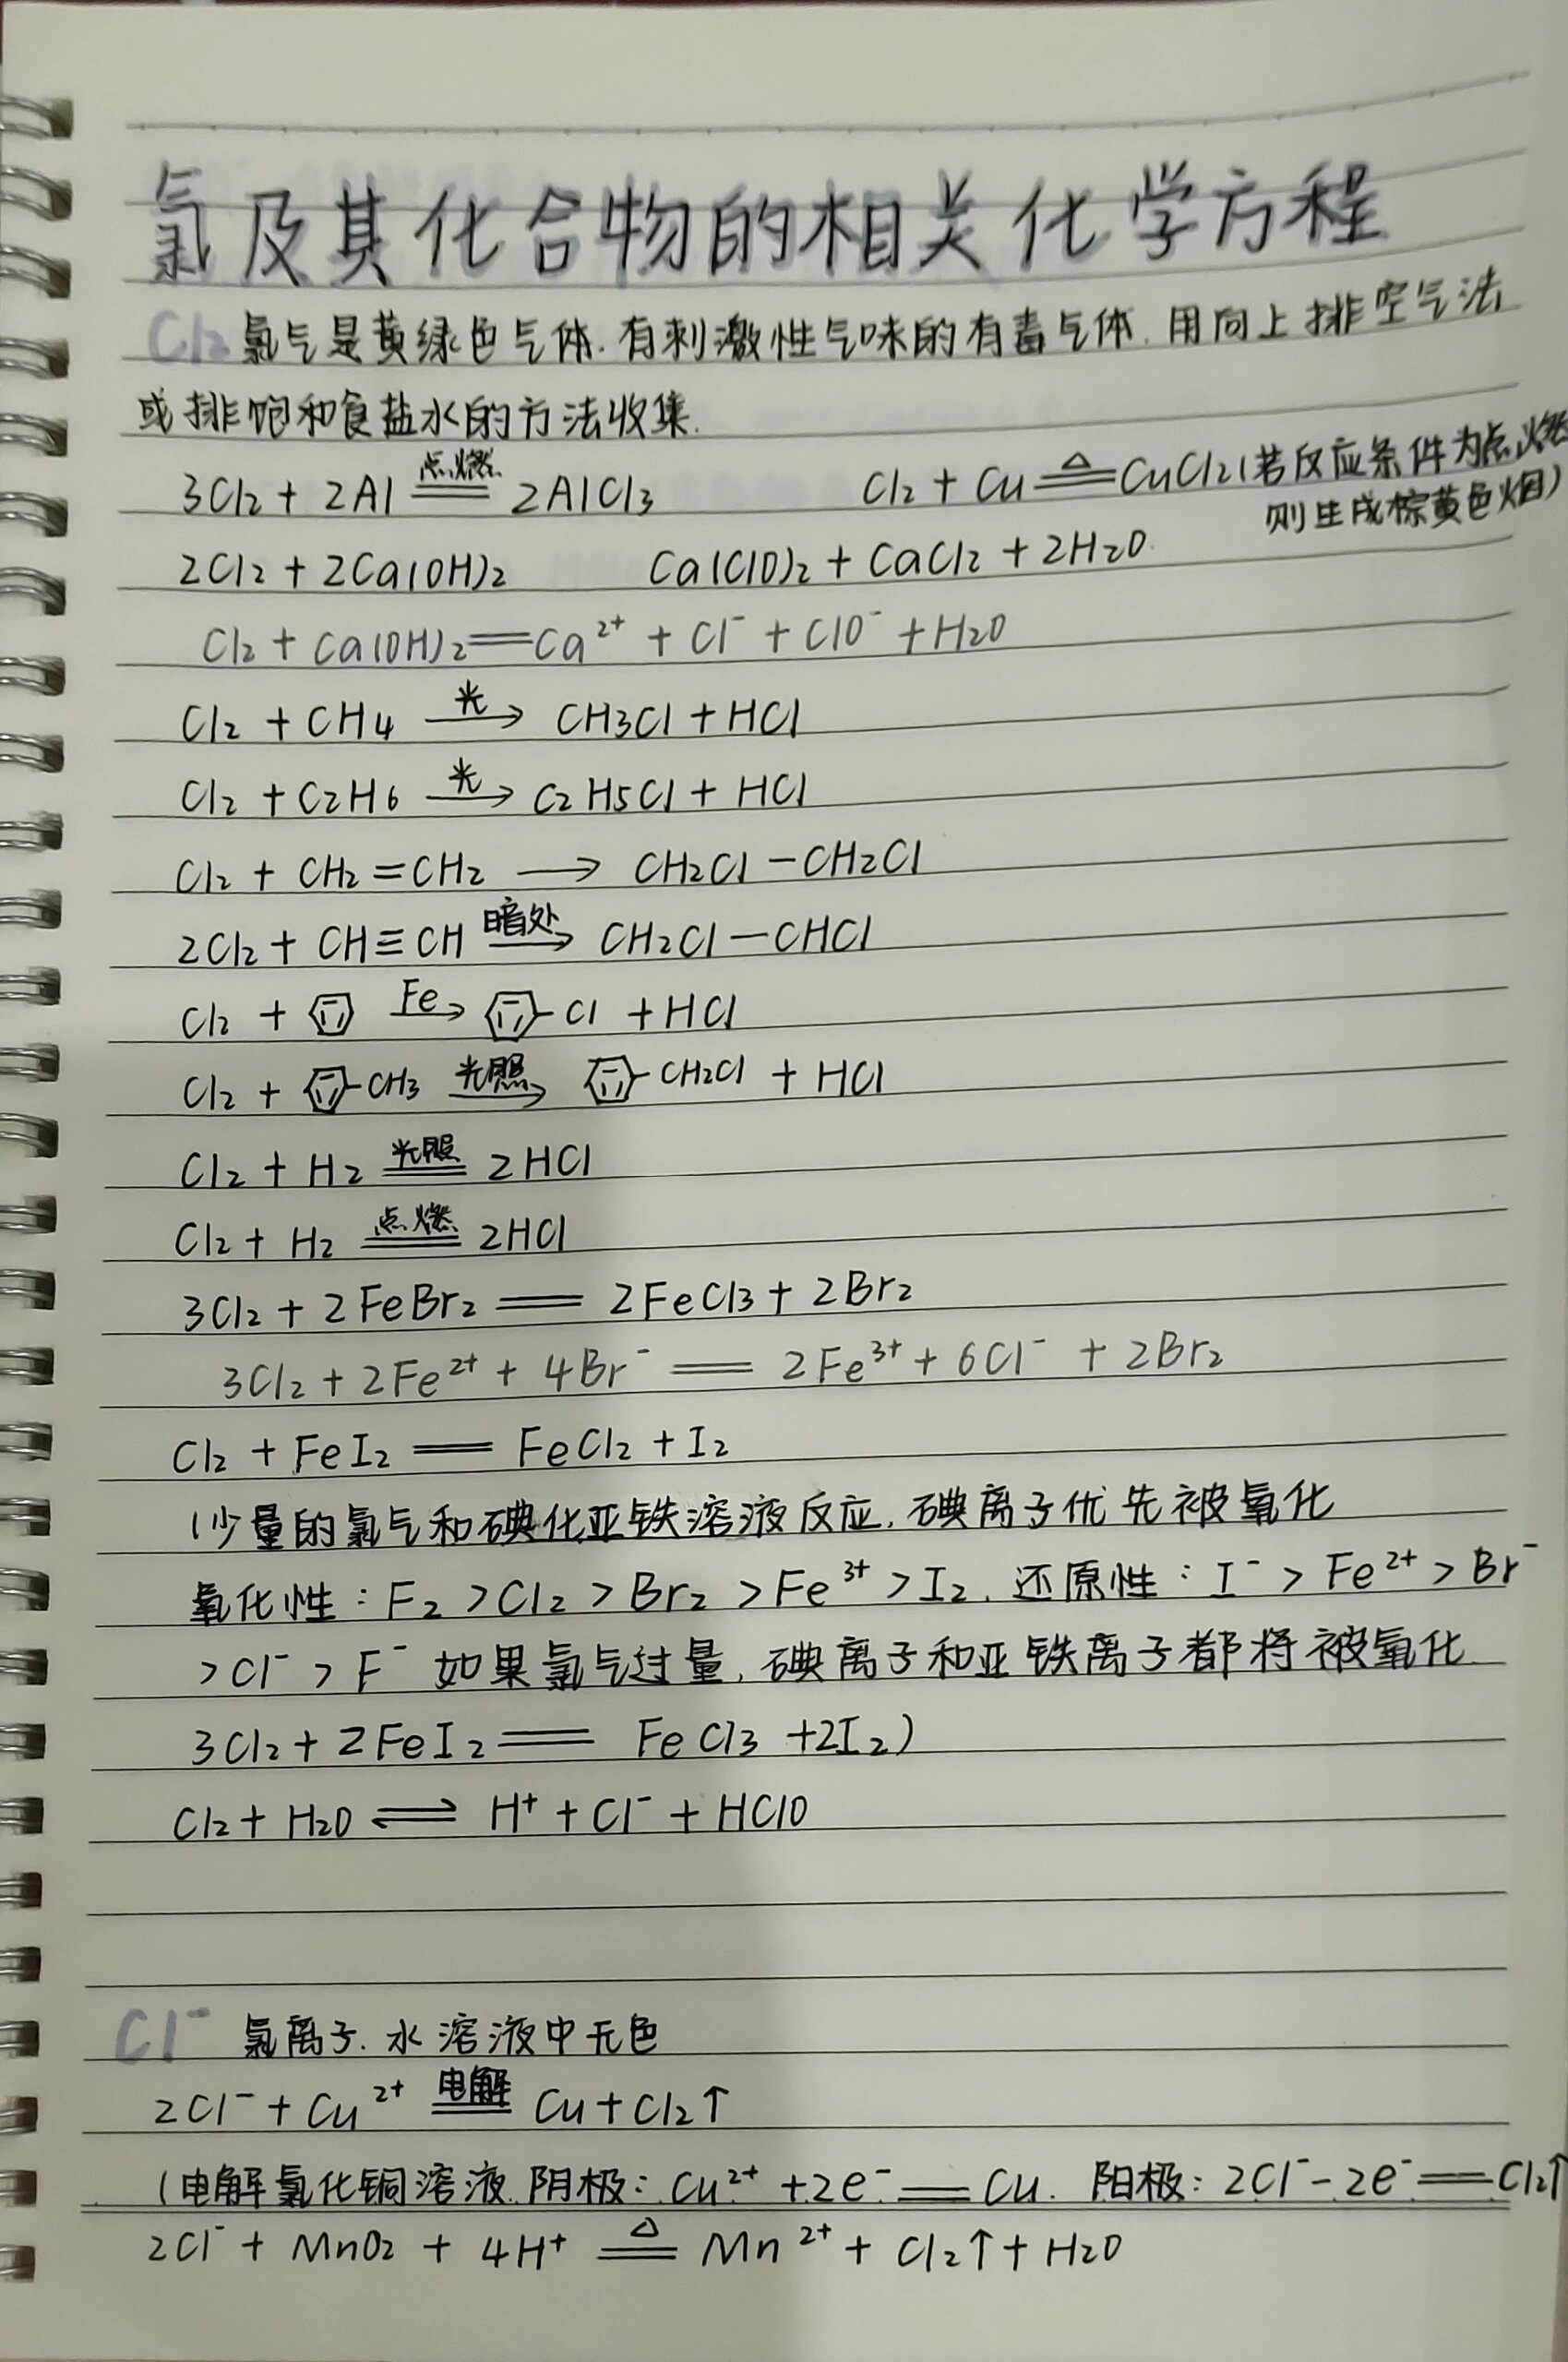 氯及其化合物的相关化学方程
Cl₂ 氯气是黄绿色气体.有刺激性气味的有毒气体.用向上排空气法
或排饱和食盐水的方法收集.
3Cl₂ + 2Al 点燃══ 2AlCl₃ Cl₂ + Cu △══ CuCl₂(若反应条件为点燃
则生成棕黄色烟)
2Cl₂ + 2Ca(OH)₂ Ca(ClO)₂ + CaCl₂ + 2H₂O.
Cl₂ + Ca(OH)₂ ══ Ca²⁺ + Cl⁻ + ClO⁻ + H₂O
Cl₂ + CH4 光→ CH3Cl + HCl
Cl₂ + C2H6 光→ C2H5Cl + HCl
Cl₂ + CH₂=CH₂ → CH₂Cl-CH₂Cl
2Cl₂ + CH≡CH 暗处→ CH₂Cl-CHCl
Cl₂ + Fe→ -Cl + HCl
Cl₂ + -CH3 光照→ -CH₂Cl + HCl
Cl₂ + H₂ 光照══ 2HCl
Cl₂ + H₂ 点燃══ 2HCl
3Cl₂ + 2FeBr₂ ══ 2FeCl₃ + 2Br₂
3Cl₂ + 2Fe²⁺ + 4Br⁻ ══ 2Fe³⁺ + 6Cl⁻ + 2Br₂
Cl₂ + FeI₂ ══ FeCl₂ + I₂
(少量的氯气和碘化亚铁溶液反应,碘离子优先被氧化
氧化性:F₂>Cl₂>Br₂>Fe³⁺>I₂.还原性:I⁻>Fe²⁺>Br⁻
>Cl⁻>F⁻ 如果氯气过量,碘离子和亚铁离子都将被氧化.
3Cl₂ + 2FeI₂ ══ FeCl₃ +2I₂)
Cl₂ + H₂O ⇌ H⁺ + Cl⁻ + HClO
Cl⁻ 氯离子.水溶液中无色
2Cl⁻ + Cu²⁺ 电解══ Cu + Cl₂↑
(电解氯化铜溶液.阴极:Cu²⁺ +2e⁻ ══ Cu. 阳极:2Cl⁻-2e⁻ ══ Cl₂↑
2Cl⁻ + MnO₂ + 4H⁺ △══ Mn²⁺ + Cl₂↑ + H₂O